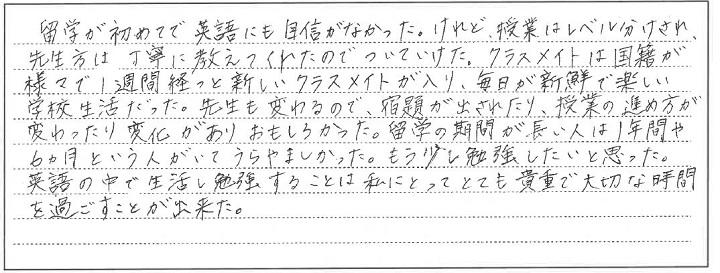 留学が初めてで英語にも自信がなかった。けれど、授業はレベル分けされ、
先生方は丁寧に教えてくれたのでついていけた。クラスメイトは国籍が
様々で1週間経つと新しいクラスメイトが入り、毎日が新鮮で楽しい
学校生活だった。先生も変わるので、宿題が出されたり、授業の進め方が
変わったり変化がありおもしろかった。留学の期間が長い人は1年間や
6ヵ月という人がいてうらやましかった。もう少し勉強したいと思った。
英語の中で生活し勉強することは私にとってとても貴重で大切な時間
を過ごすことが出来た。